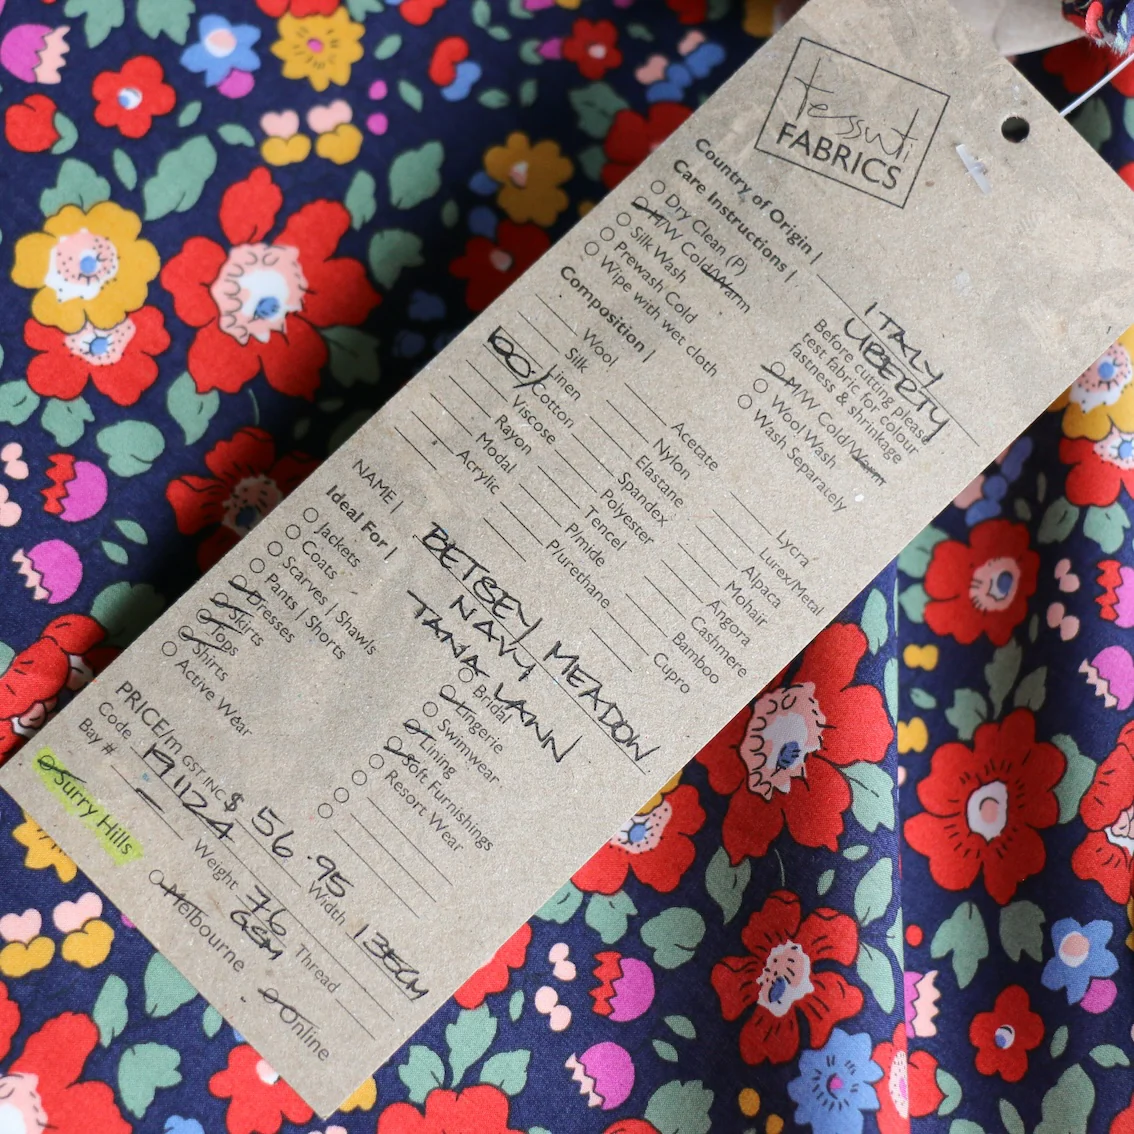 tessuti
FABRICS
Country of Origin | ITALY
LIBERTY
Care Instructions |
Before cutting please
test fabric for colour
fastness & shrinkage
Dry Clean (P)
H/W Cold/Warm
Silk Wash
Prewash Cold
Wipe with wet cloth
M/W Cold/Warm
Wool Wash
Wash Separately
Composition |
Wool
Silk
Linen
100% Cotton
Viscose
Rayon
Modal
Acrylic
Acetate
Nylon
Elastane
Spandex
Polyester
Tencel
P/mide
P/urethane
Lycra
Lurex/Metal
Alpaca
Mohair
Angora
Cashmere
Bamboo
Cupro
NAME | BETSEY MEADOW
NAVY
TANA LAWN
Ideal For |
Jackets
Coats
Scarves | Shawls
Pants | Shorts
Dresses
Skirts
Tops
Shirts
Active Wear
Bridal
Lingerie
Swimwear
Lining
Soft Furnishings
Resort Wear
PRICE/m GST INC $ 56.95
Code 191124
Width 135CM
Bay # –
Weight 76 GSM
Thread
Surry Hills
Melbourne
Online